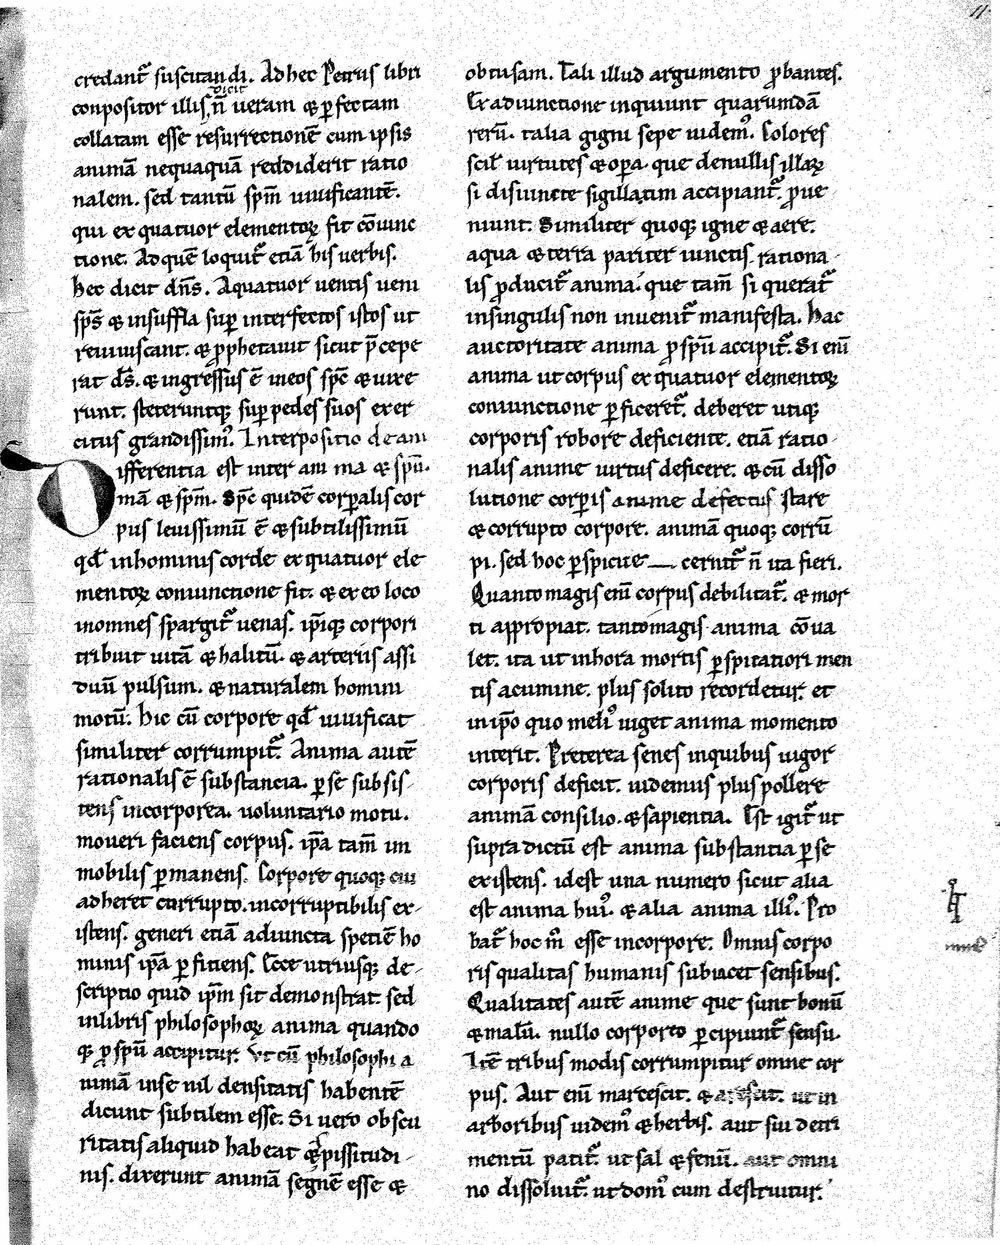 11
credant᷑ suscitandi. Ad hec Petrus libri
conpositor illis, dicit n̄ ueram & ꝑfectam
collatam esse resurrectionē cum ipsis
animā nequaquā reddiderit ratio
nalem. sed tantū sp̄m uiuificantē.
qui ex quatuor elementoꝝ fit cōiunc
tione. Ad quē loquit᷑ etiā his uerbis.
Hec dicit dn̄s. A quatuor uentis ueni
sp̄s & insuffla suꝑ interfectos istos ut
reuiuiscant. & ꝓphetauit sicut p̄cepe
rat ds̄. & ingressus ē in eos sp̄c & uixe
runt. steteruntqꝫ suꝑ pedes suos exer
citus grandissimꝰ. Interpositio de ani
Differentia est inter ani ma & sp̄u.
mā & sp̄m. Sp̄c quidē corꝑalis cor
pus leuissimū ē & subtilissimū
qd̄ in hominis corde ex quatuor ele
mentoꝝ coniunctione fit. & ex eo loco
in omnes spargit᷑ uenas. ip̄iqꝫ corpori
tribuit uitā & halitū. & arteriis assi
duū pulsum. & naturalem homini
motū. Hic cū corpore qd̄ uiuificat
similiter corrumpit᷑. Anima autē
rationalis ē substancia. ꝑ se subsis-
tens incorporea. uoluntario motu.
moueri faciens corpus. ip̄a tam̄ im
mobilis ꝑmanens. Corpore quoqꝫ cui
adheret corrupto. incorruptibilis ex-
istens. generi etiā adiuncta spetiē ho
minis ip̄a ꝑficiens. Ecce utriusqꝫ de-
scriptio quid ip̄m sit demonstrat sed
in libris philosophoꝝ anima quando
qꝫ ꝓ sp̄u accipitur. Vt cū philosophi a
nimā in se nil densitatis habentē
dicunt subtilem esse. Si uero obscu
ritatis aliquid habeat & spissitudi-
nis. dixerunt animā segnē esse &
obtusam. Tali illud argumento ꝓbantes.
Ex adiunctione inquiunt quarundā
rerū. talia gigni sepe uidemꝰ. Colores
scil̄ uirtutes & oꝑa. que de nullis illaꝝ
si disiuncte sigillatim accipiant᷑. ꝓue
niunt. Similiter quoqꝫ igne & aere.
aqua & terra pariter iunctis rationa-
lis ꝓducit᷑ anima. que tam̄ si querat᷑
in singulis non inuenit᷑ manifesta. Hac
auctoritate anima ꝓ sp̄u accipit᷑. Si eni̅
anima ut corpus ex quatuor elementoꝝ
coniunctione ꝑficeret᷑. deberet utiqꝫ
corporis robore deficiente. etiā ratio-
nalis anime uirtus deficere. & cū disso
lutione corꝑis anime defectus stare
& corrupto corpore. animā quoqꝫ corrū
pi. sed hoc ꝑspicue — cernit᷑ n̄ ita fieri.
Quanto magis eni̅ corpus debilitat᷑. & mor
ti appropiat. tanto magis anima cōua
let. ita ut in hora mortis ꝑspicatiori men
tis acumine. plus solito recordetur. et
in ip̄o quo meliꝰ uiget anima momento
interit. Preterea senes in quibus uigor
corporis deficit. uidemus plus pollere
animā consilio. & sapientia. Est igit᷑ ut
supra dictū est anima substantia ꝑ se
existens. idest una numero sicut alia
est anima huiꝰ. & alia anima illiꝰ. Pro
bat᷑ hoc m̄ esse incorpore. Omnis corpo
ris qualitas humanis subiacet sensibus.
Qualitates autē anime que sunt bonū
& malū. nullo corporeo ꝑcipiunt᷑ sensu.
Itē tribus modis corrumpitur omne cor
pus. Aut eni̅ marcescit. & arescit. ut in
arboribus uidemꝰ & herbis. aut sui detri
mentū patit᷑. ut sal & fenū. aut omni
no dissoluit᷑. ut domꝰ cum destruitur.